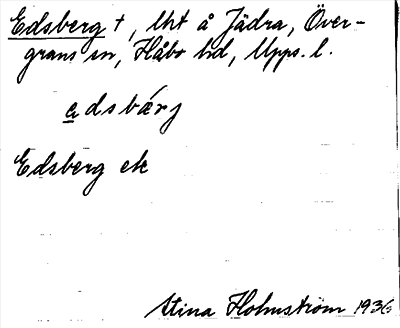 Edsberg †, lht å Jädra, Över-
grans sn, Håbo hd, Upps. l.
edsbærj
Edsberg ek
Stina Holmström 1936